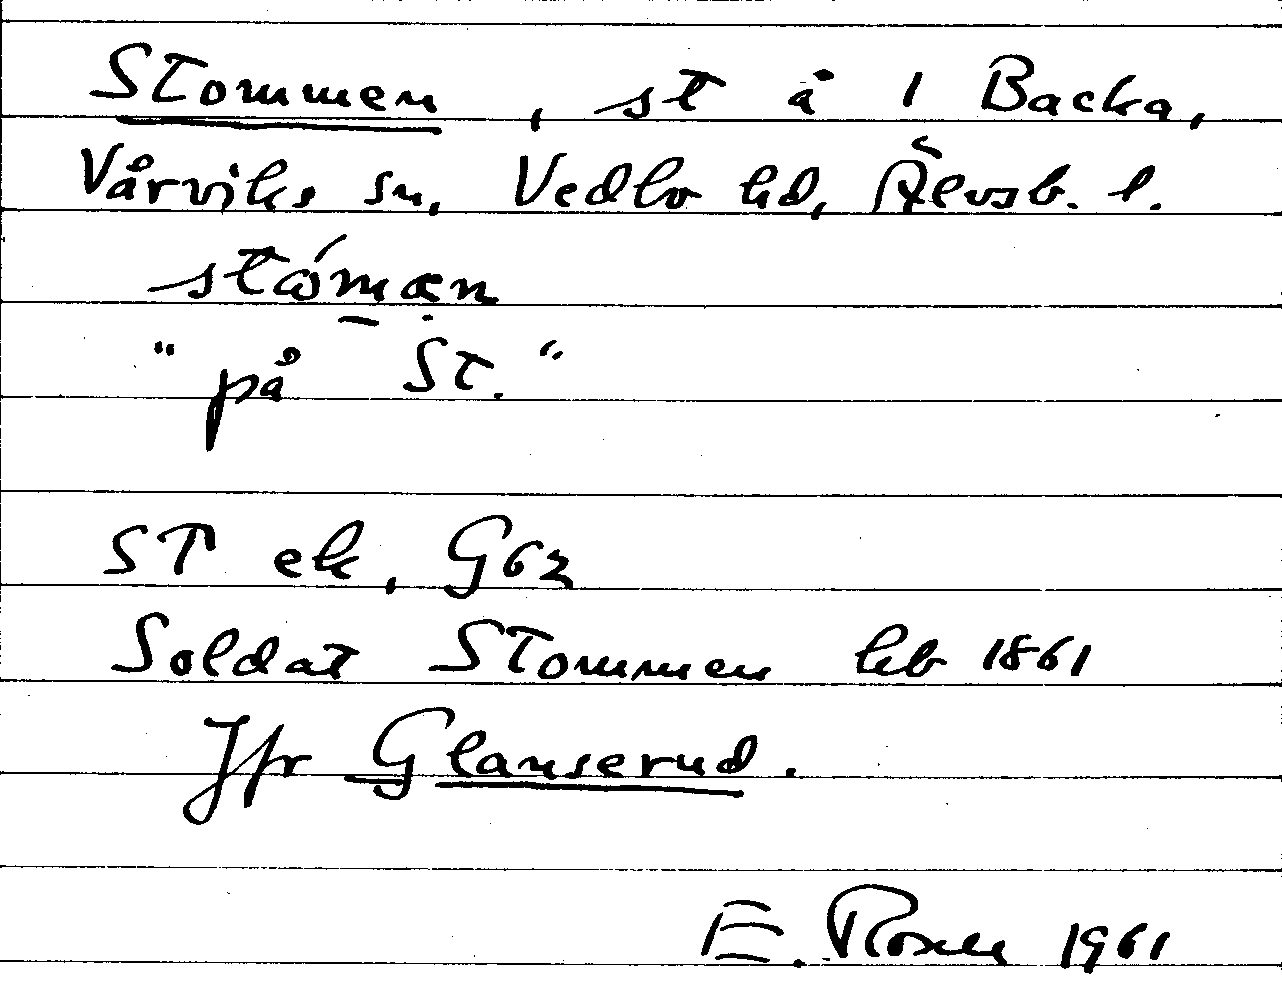 Stommen, st å 1 Backa,
Vårviks sn, Vedbo hd, Älvsb. l.
"på St."
ST ek, G62
Soldat Stommen hb 1861
Jfr Glanserud.
E. Rosell 1961